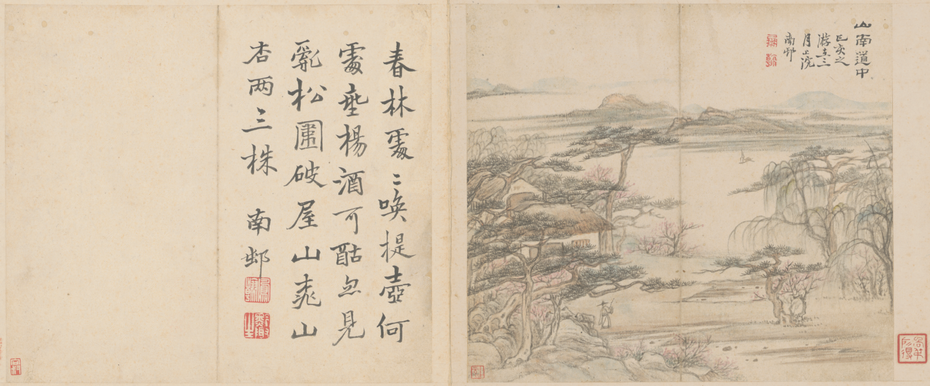 山南道中
己亥之
游在三
月上浣
南邨
春林處〻喚提壺何
處垂楊酒可酤忽見
亂松圍破屋山桃山
杏兩三株 南邨